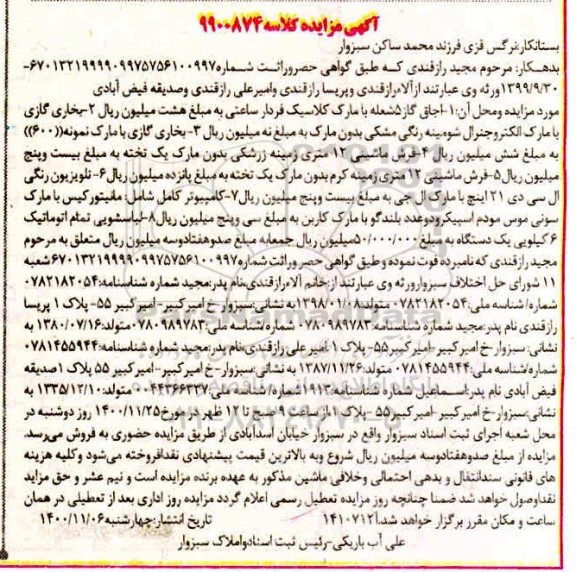 آگهی مزایده کلاسه ۹۹۰۰۸۷۴
بستانکار:نرگس قزی فرزند محمد ساکن سبزوار
بدهکار: مرحوم مجید رازقندی کـه طبق گواهی حصروراثـت شـماره۶۷۰۱۳۲۱۹۹۹۹۰۹۹۷۵۷۵۶۱۰۰۹۹۷-
۱۳۹۹/۹/۳۰ورثه وی عبارتند ازآلاءرازقندی وپریسا رازقندی وامیرعلی رازقندی وصدیقه فیض آبادی
مورد مزایده ومحل آن:۱-اجاق گاز۵شعله با مارک کلاسیک فردار ساعتی به مبلغ هشت میلیون ریال ۲-بخاری گازی
با مارک الکتروجنرال شومینه رنگی مشکی بدون مارک به مبلغ نه میلیون ریال ۳- بخاری گازی با مارک نمونه((۶۰۰))
به مبلغ شش میلیون ریال ۴-فرش ماشینی ۱۲ متری زمینه زرشکی بدون مارک یک تخته به مبلغ بیست وپنج
میلیون ریال۵-فرش ماشینی ۱۲ متری زمینه کرم بدون مارک یک تخته به مبلغ پانزده میلیون ریال۶-تلویزیون رنگی
ال سی دی ۲۱ اینچ با مارک ال جی به مبلغ بیست وپنج میلیون ریال۷-کامپیوتر کامل شامل: مانیتورکیس با مارک
سونی موس مودم اسپیکرودوعدد بلندگو با مارک کارین به مبلغ سی وپنج میلیون ریال۸-لباسشویی تمام اتوماتیک
۶ کیلویی یک دستگاه به مبلغ ۵۰/۰۰۰/۰۰۰میلیون ریال جمعابه مبلغ صدوهفتادوسه میلیون ریال متعلق به مرحوم
مجید رازقندی که نامبرده فوت نموده وطبق گواهی حصر وراثت شماره۶۷۰۱۳۲۱۹۹۹۹۰۹۹۷۵۷۵۶۱۰۰۹۹۷شعبه
۱۱ شورای حل اختلاف سبزوارورثه وی عبارتند از:خانم آلاءرازقندی‌نام پدر:مجید شماره شناسنامه:۰۷۸۲۱۸۲۰۵۴
شماره/ شناسه ملی:۰۷۸۲۱۸۲۰۵۴ متولد:۱۳۹۸/۰۱/۰۸به نشانی:سبزوار-خ امیر کبیر-امیر کبیر ۵۵- پلاک ۱ پریسا
رازقندی نام پدر:مجید شماره شناسنامه:۰۷۸۰۹۸۹۷۸۳ شماره/شناسه ملی:۰۷۸۰۹۸۹۷۸۳متولد:۱۳۸۰/۰۷/۱۶به
نشانی: سبزوار-خ امیر کبیر-امیر کبیر۵۵- پلاک ۱-امیر علی رازقندی‌نام پدر:مجید شماره شناسنامه:۰۷۸۱۴۵۵۹۴۴
شماره/شناسه ملی:۰۷۸۱۴۵۵۹۴۴ متولد:۱۳۸۷/۱۱/۲۶ به نشانی:سبزوار-خ امیرکبیر-امیرکبیر ۵۵ پلاک ۱صدیقه
فیض آبادی نام پدر:اسـماعیل شماره شناسنامه:۱۹۱۳شماره/شناسه ملی:۰۰۴۴۳۶۶۳۳۷ متولد:۱۳۳۵/۱۲/۱۰ به
نشانی:سبزوار-خ امیر کبیر-امیر کبیر۵۵ -پلاک ۱،از ساعت ۹ صبح تا ۱۲ ظهر در مورخ۱۴۰۰/۱۱/۲۵ روز دوشنبه در
محل شعبه اجرای ثبت اسناد سبزوار واقع در سبزوار خیابان اسدآبادی از طریق مزایده حضوری به فروش می‌رسد.
مزایده از مبلغ صدوهفتادوسه میلیون ریال شروع وبه بالاترین قیمت پیشنهادی نقدافروخته می‌شود وکلیه هزینه
های قانونی سندانتقال و بدهی احتمالی وخلافی ماشین مذکور به عهده برنده مزایده است و نیم عشر و حق مزاید
نقداوصول خواهد شد ضمنا چنانچه روز مزایده تعطیل رسمی اعلام گردد مزایده روز اداری بعد از تعطیلی در همان
ساعت و مکان مقرر برگزار خواهد شد.آ۱۴۱۰۷۱۲ تاریخ انتشار:چهارشنبه۱۴۰۰/۱۱/۰۶
علی آب باریکی-رئیس ثبت اسنادواملاک سبزوار